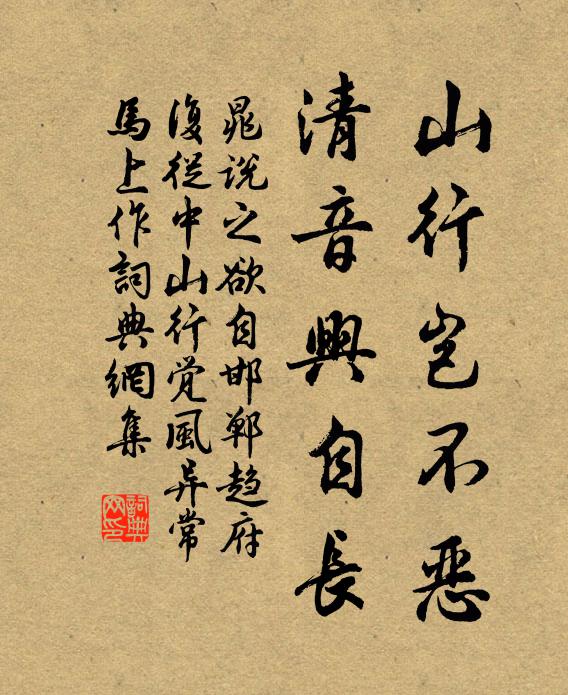 山行岂不恶
清音興自長
晁説之欲自邯鄲趋府
復從中山行觉風异常
馬上作詞典網集
詞典网印